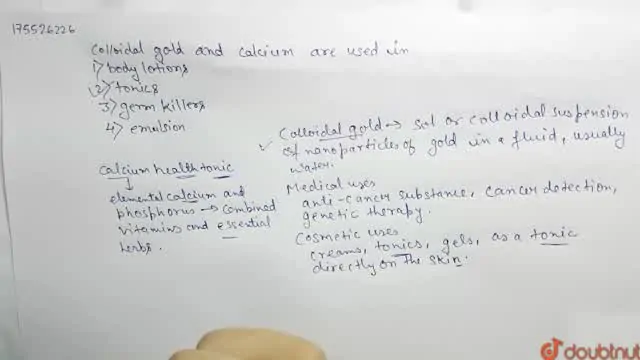 175526226
Colloidal gold and calcium are used in
1) body lotions
(2) tonics
3) germ killers
4) emulsion
Colloidal gold → sol or colloidal suspension
of nanoparticles of gold in a fluid, usually
water.
Calcium health tonic
↓
elemental calcium and
phosphorus → combined
vitamins and essential
herbs.
Medical uses
anti-cancer substance, cancer detection,
genetic therapy.
Cosmetic uses
creams, tonics, gels, as a tonic
directly on the skin.
doubtnut